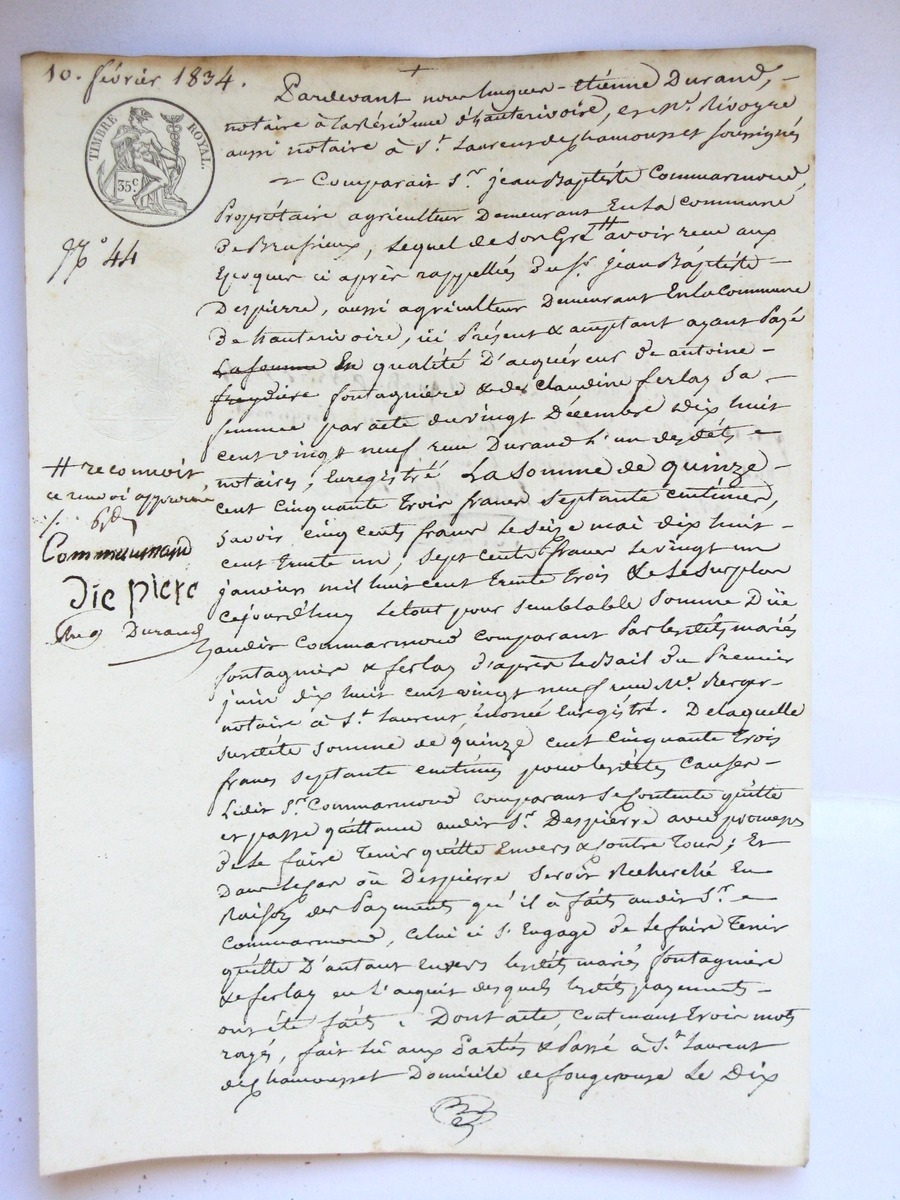 10. février 1834.
TIMBRE ROYAL.
35 c.
N.° 44
Pardevant nous hugues-étienne Durand,
notaire à la résidence d'hauterivoire, et M.e Rivoyre
aussi notaire à S.t Laurent de chamousset soussignés
Comparait S.r jean Baptiste Commarmond
Propriétaire agriculteur Demeurant En la commune
De Brussieux, Lequel de Son Gré # avoir recu aux
Epoques ci après rappellées du S.r jean Baptiste
Despierre, aussi agriculteur Demeurant En la Commune
De hauterivoire, ici Présent & acceptant ayant Payé
La somme En qualité D'acquéreur de antoine
freydière fontagnière & de Claudine ferlay sa
femme par acte du vingt Décembre dix huit
cent vingt neuf recu Durand l'un desdéts
notaires, Enregistré La Somme de quinze
cent cinquante trois francs septante centimes,
Savoir cinq cents francs le seize mai dix huit
cent trente un, sept cents francs le vingt un
janvier mil huit cent trente trois & le surplus
cejourd'huy Le tout pour semblable somme Düe
audit Commarmond comparant Par lesdéts mariés
fontagnière & ferlay d'après le Bail du Premier
juin dix huit cent vingt neuf recu M.e Berger
notaire à S.t Laurent, énoncé Enregistré. De laquelle
susdéte somme de quinze cent cinquante trois
francs septante centimes pour lesdétes causes
Ledit S.r Commarmond comparant se contente quitte
et passe quittance audit S.r Despierre avec promesse
de le faire tenir quitte Envers & contre Tous; Et
Dans le cas où Despierre seroit Recherché En
Raison des Payments qu'il à faits audit S.r
Commarmond, celui ci s'Engage de le faire Tenir
quitte D'autant Envers lesdéts mariés fontagnière
& ferlay en l'acquit desquels lesdéts payements
ont été faits. Dont acte, contenant trois mots
rayés, fait lu aux Parties & Passé à S.t Laurent
de chamousset Domicile de fougerouse Le Dix
# reconnoit,
ce renvoi approuvé
Commarmand
die piere
Durand